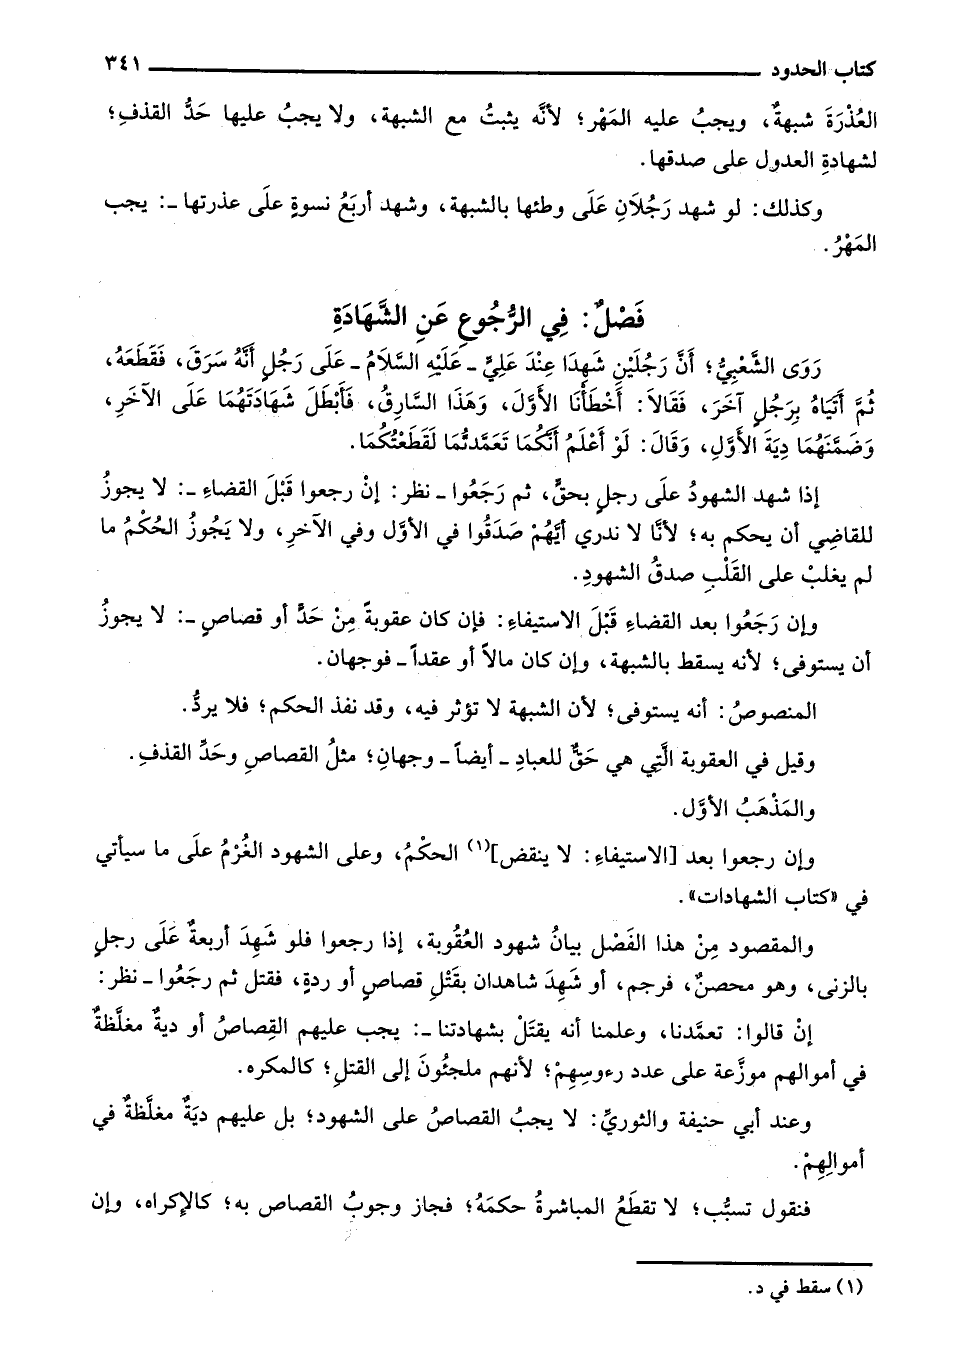 كتاب الحدود ٣٤١
العُذْرَةَ شبهةٌ، ويجبُ عليه المَهْر؛ لأنَّه يثبتُ مع الشبهة، ولا يجبُ عليها حَدُّ القذفِ؛
لشهادةِ العدول على صدقها.
وكذلك: لو شهد رَجُلَانِ عَلَى وطئها بالشبهة، وشهد أربَعُ نسوةٍ علَى عذرتها ـ: يجب
المَهْرُ.
فَصْلٌ: فِي الرُّجُوعِ عَنِ الشَّهَادَةِ
رَوَى الشَّعْبِيُّ؛ أَنَّ رَجُلَيْنِ شَهِدَا عِنْدَ عَلِيٍّ ـ عَلَيْهِ السَّلَامُ ـ عَلَى رَجُلٍ أَنَّهُ سَرَقَ، فَقَطَعَهُ،
ثُمَّ أَتَيَاهُ بِرَجُلٍ آخَرَ، فَقَالَا: أَخْطَأْنَا الأَوَّلَ، وَهَذَا السَّارِقُ، فَأَبْطَلَ شَهَادَتَهُمَا عَلَى الآخَرِ،
وَضَمَّنَهُمَا دِيَةَ الأَوَّلِ، وَقَالَ: لَوْ أَعْلَمُ أَنَّكُمَا تَعَمَّدتُّمَا لَقَطَعْتُكُمَا.
إذا شهد الشهودُ علَى رجلٍ بحقٍّ، ثم رَجَعُوا ـ نظر: إنْ رجعوا قَبْلَ القضاءِ ـ: لا يجوزُ
للقاضِي أن يحكم به؛ لأنَّا لا ندري أيَّهُمْ صَدَقُوا في الأوَّل وفي الآخرِ، ولا يَجُوزُ الحُكْمُ ما
لم يغلبْ على القَلْبِ صدقُ الشهودِ.
وإن رَجَعُوا بعد القضاءِ قَبْلَ الاستيفاءِ: فإن كان عقوبةً مِنْ حَدٍّ أو قصاصٍ ـ: لا يجوزُ
أن يستوفى؛ لأنه يسقط بالشبهة، وإن كان مالاً أو عقداً ـ فوجهان.
المنصوصُ: أنه يستوفى؛ لأن الشبهة لا تؤثر فيه، وقد نفذ الحكم؛ فلا يردُّ.
وقيل في العقوبة الَّتِي هي حَقٌّ للعبادِ ـ أيضاً ـ وجهانِ؛ مثلُ القصاصِ وحَدِّ القذفِ.
والمَذْهَبُ الأوَّل.
وإن رجعوا بعد [الاستيفاءِ: لا ينقض](١) الحكْمُ، وعلى الشهود الغُرْمُ علَى ما سيأتي
في «كتاب الشهادات».
والمقصود مِنْ هذا الفَصْل بيانُ شهود العُقُوبة، إذا رجعوا فلو شَهِدَ أربعةٌ عَلَى رجلٍ
بالزنى، وهو محصنٌ، فرجم، أو شَهِدَ شاهدان بقَتْلِ قصاصٍ أو ردةٍ، فقتل ثم رجَعُوا ـ نظر:
إنْ قالوا: تعمَّدنا، وعلمنا أنه يقتَلْ بشهادتنا ـ: يجب عليهم القِصاصُ أو ديةٌ مغلَّظةٌ
في أموالهم موزَّعة على عدد رءوسِهِمْ؛ لأنهم ملجئُونَ إلى القتلِ؛ كالمكره.
وعند أبي حنيفة والثوريِّ: لا يجبُ القصاصُ على الشهود؛ بل عليهم ديَةٌ مغلَّظةٌ في
أموالِهِمْ.
فنقول تسبُّب؛ لا تقطَعُ المباشرةُ حكمَهُ؛ فجاز وجوبُ القصاص به؛ كالإكراه، وإن
(١) سقط في د.